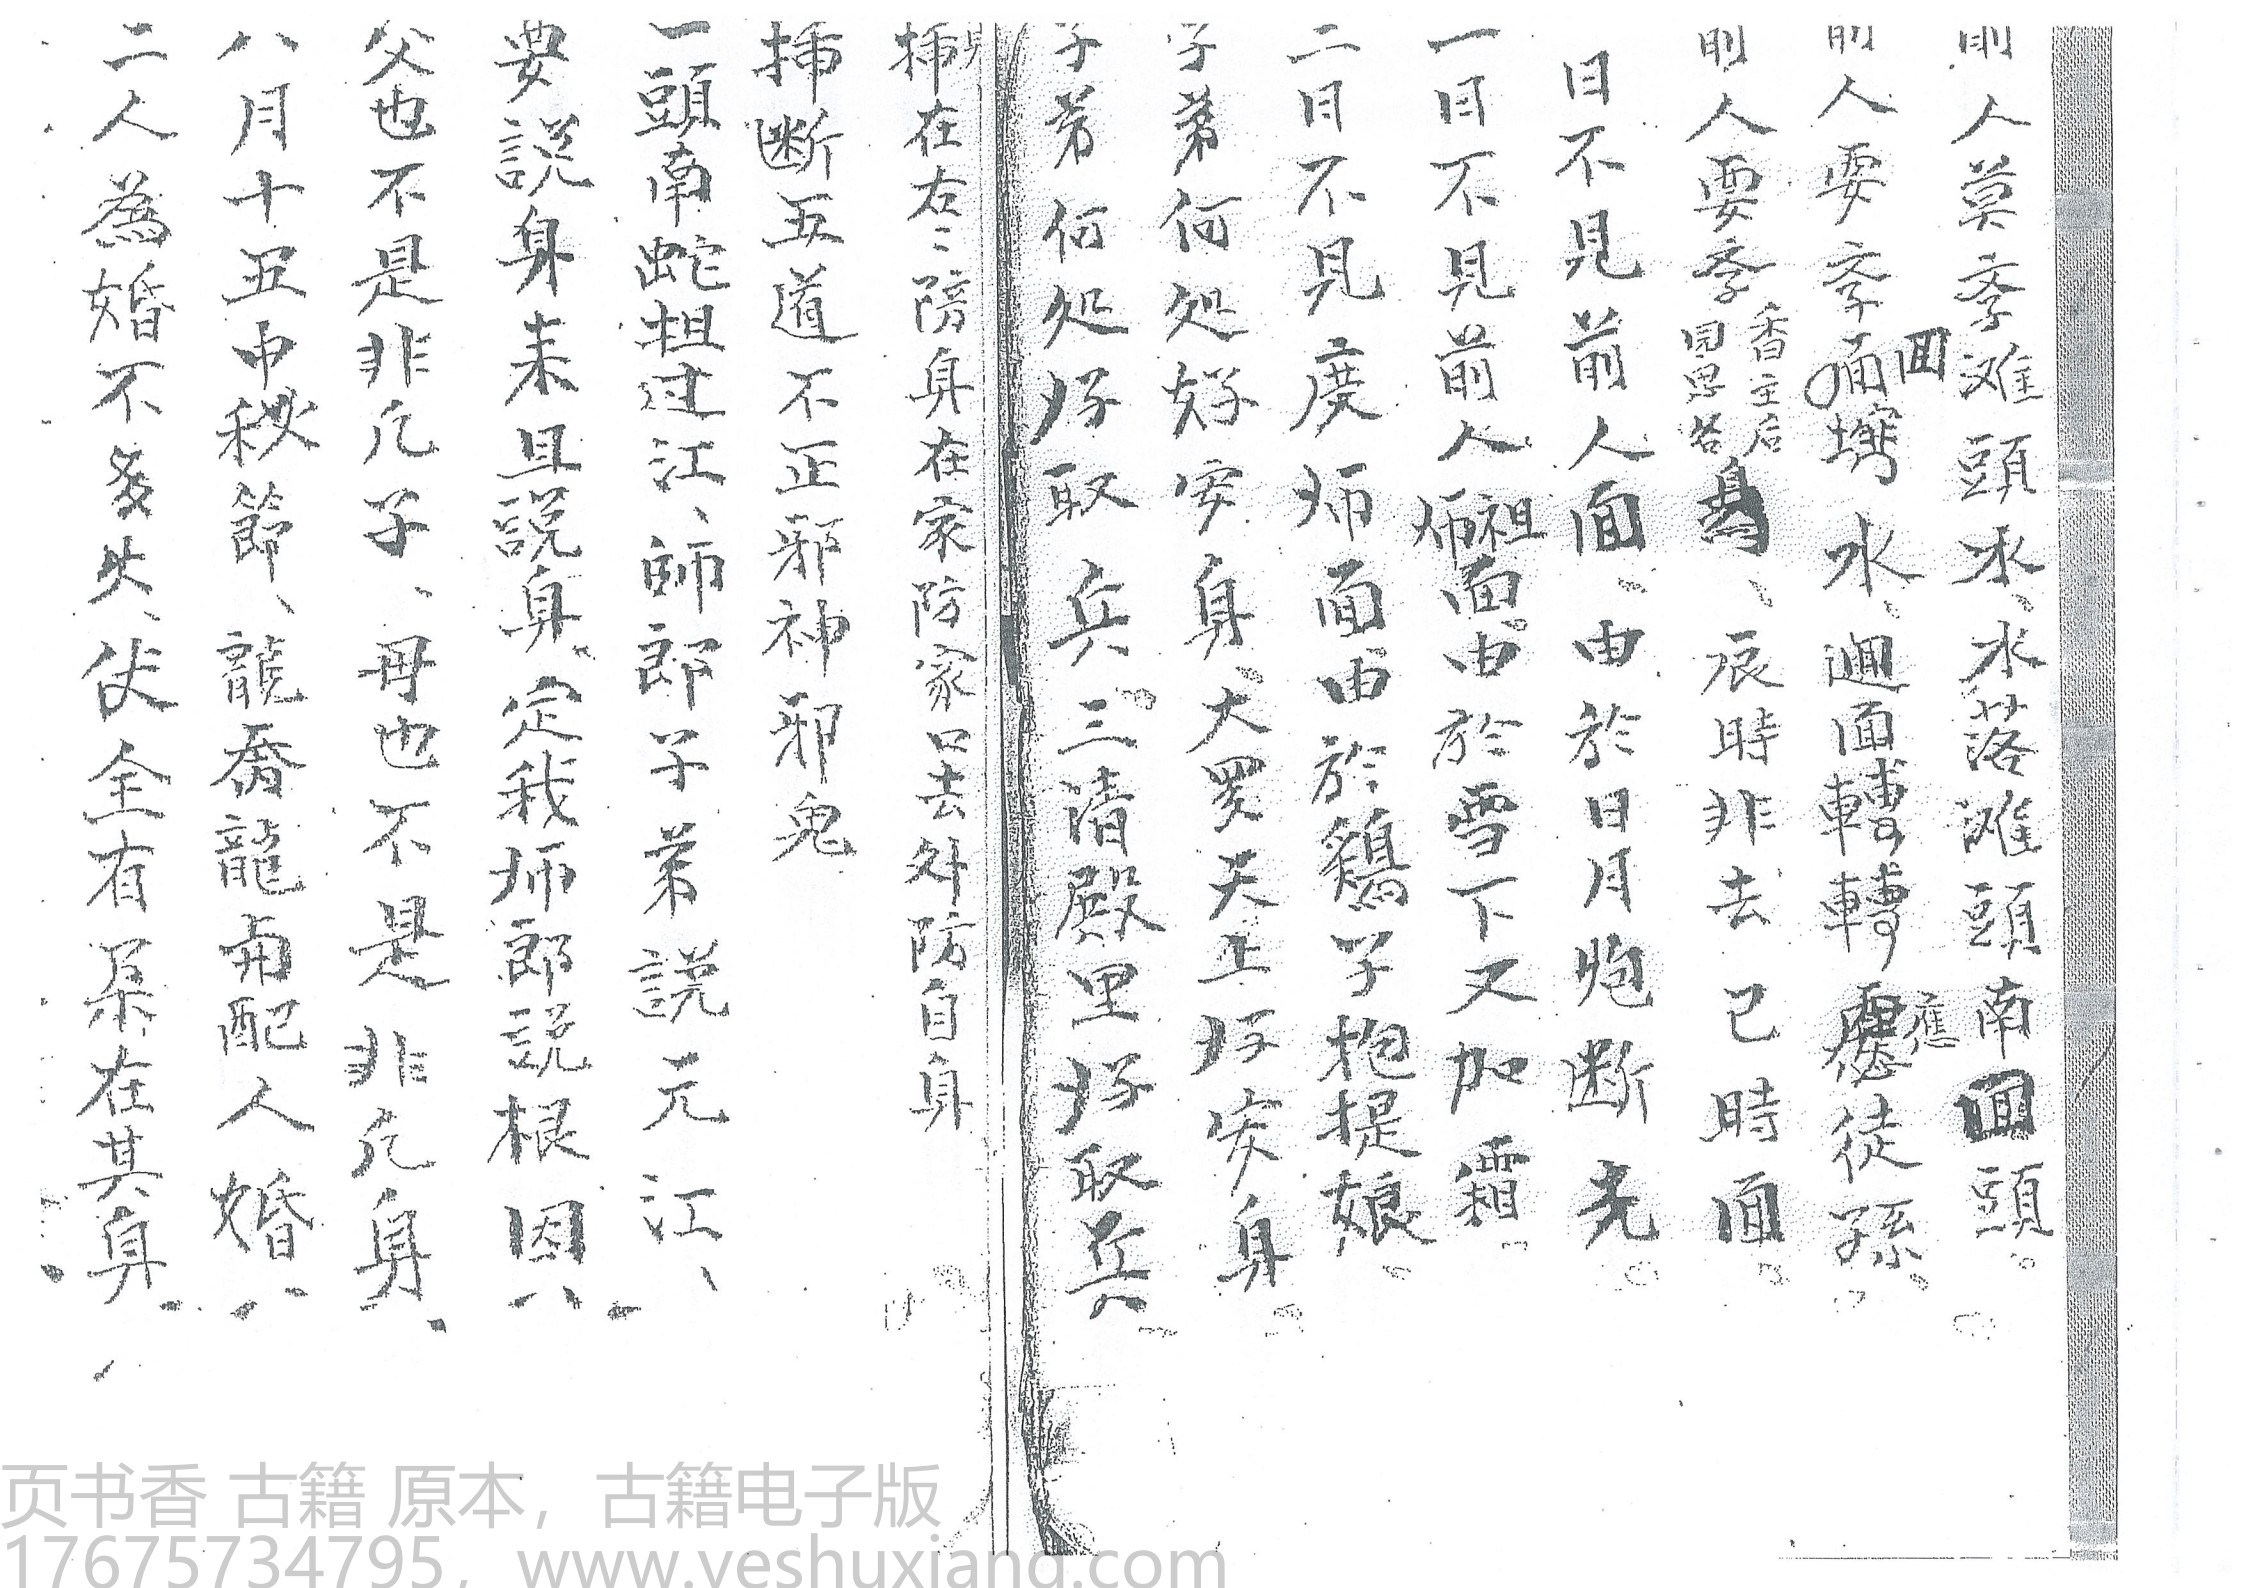 前人莫孝滩頭水、水落滩頭南回頭。
前人要孝回 水、迴面轉轉應徒孫。
前人要孝香主后回罗各身、辰時非去已時面
日不見前人面、由於日月炮断光
一目不見前人师祖面由於雪下又加霜
二目不見度师面由於鷄子抱提娘
子弟何処好安身、大罗天上好安身
子弟何処好取兵、三清殿里好取兵
挿在左々防身在家防家口去外防自身
挿断五道不正邪神邪鬼
一頭南蛇担过江、師郎子弟説元江、
要説身来且説身、定我师郎説根因
父也不是非凡子、母也不是非凡身
八月十五中秋節、龍 龍 配人婚
二人為婚不多失、使全有 在其身
页书香 古籍 原本，古籍电子版
17675734795，www.yeshuxiang.com